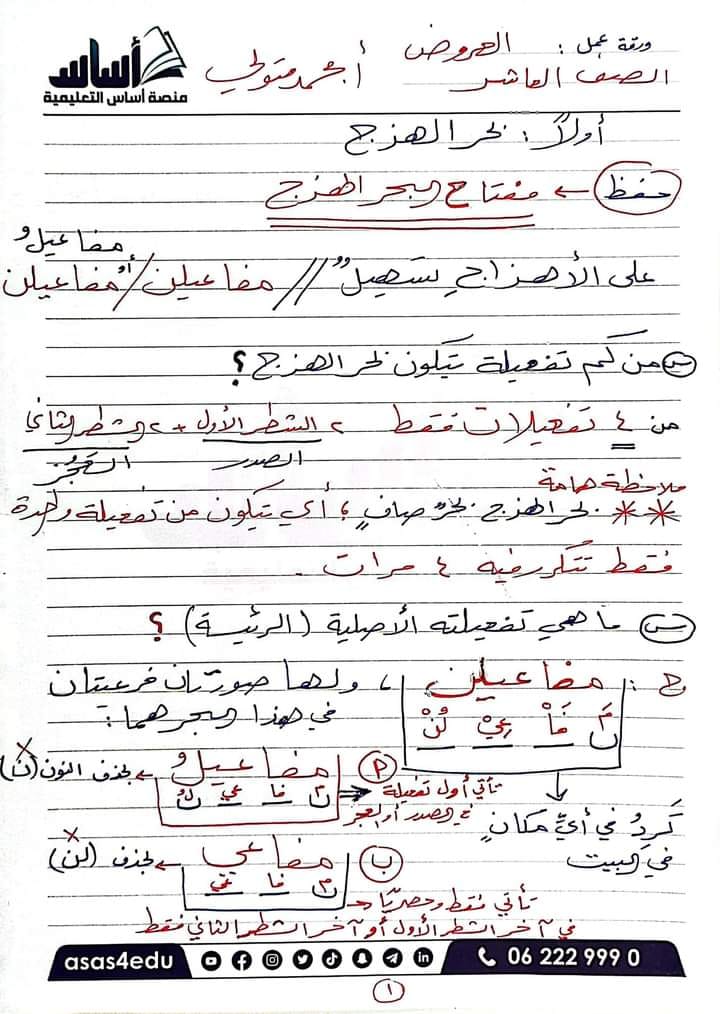 ورقة عمل : العروض
الصف العاشر
أ. محمد متولي
أساس
منصة أساس التعليمية
أولاً : بحر الهزج
حفظ ← مفتاح البحر الهزج
مفاعيلُ
على الأهزاجِ تسهيلُ // مفاعيلن / أو مفاعيلن
س من كم تفعيلة يتكون بحر الهزج ؟
من ٤ تفعيلات فقط ٢ الشطر الأول + ٢ الشطر الثاني
الصدر العَجُز
ملاحظة هامة
** بحر الهزج بحرٌ صافٍ ؛ أي يتكون من تفعيلة واحدة
فقط تتكرر فيه ٤ مرات .
س ما هي تفعيلته الأصلية (الرئيسة) ؟
ج : مفاعيلن ، ولها صورتان فرعيتان
مَ فَاْ عِيْ لُنْ
في هذا البحر هما :
أ مفاعيلُ ← بحذف النون (ن)
مَ فا عي لُ
تأتي أول تفعيلة
في الصدر أو العجز
تَرِدُ في أيِّ مكانٍ
في البيت
ب مفاعي ← بحذف (لن)
مَ فا عي
تأتي فقط وحصريًا
في آخر الشطر الأول أو آخر الشطر الثاني فقط
asas4edu
in
06 222 999 0
١